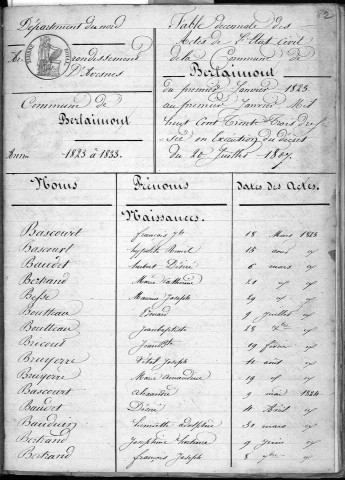 Département du nord
Arrondissement
D'avesnes
Commune de
Berlaimont
Année 1823 à 1833.
Table décennale des
Actes de l'Etat Civil
de la Commune de
Berlaimont
du premier Janvier 1823
au premier Janvier Mil
huit Cent Trente Trois
en Exécution du décret
du 20 Juillet 1807.
Noms Prénoms Dates des Actes.
Naissances.
Bascourt françois 18 Mars 1823
Bascourt hypolite 15 aout
Baudet hubert Désiré 6 mars
Bertrand Marie Catherine 21
Besse Maxime Joseph 29
Boutteau Edouard 9 juillet
Boutteau jeanbaptiste 28
Bricout 19 février
Bruyerre Vital Joseph 10 aout
Bruyerre Marie amandine 19
Bascourt alexandre 9 mai 1824
Baudet Désiré 4 Avril
Bauduin henriette adolphine 30 mars
Bertrand Josephine 9 juin
Bertrand françois Joseph 8